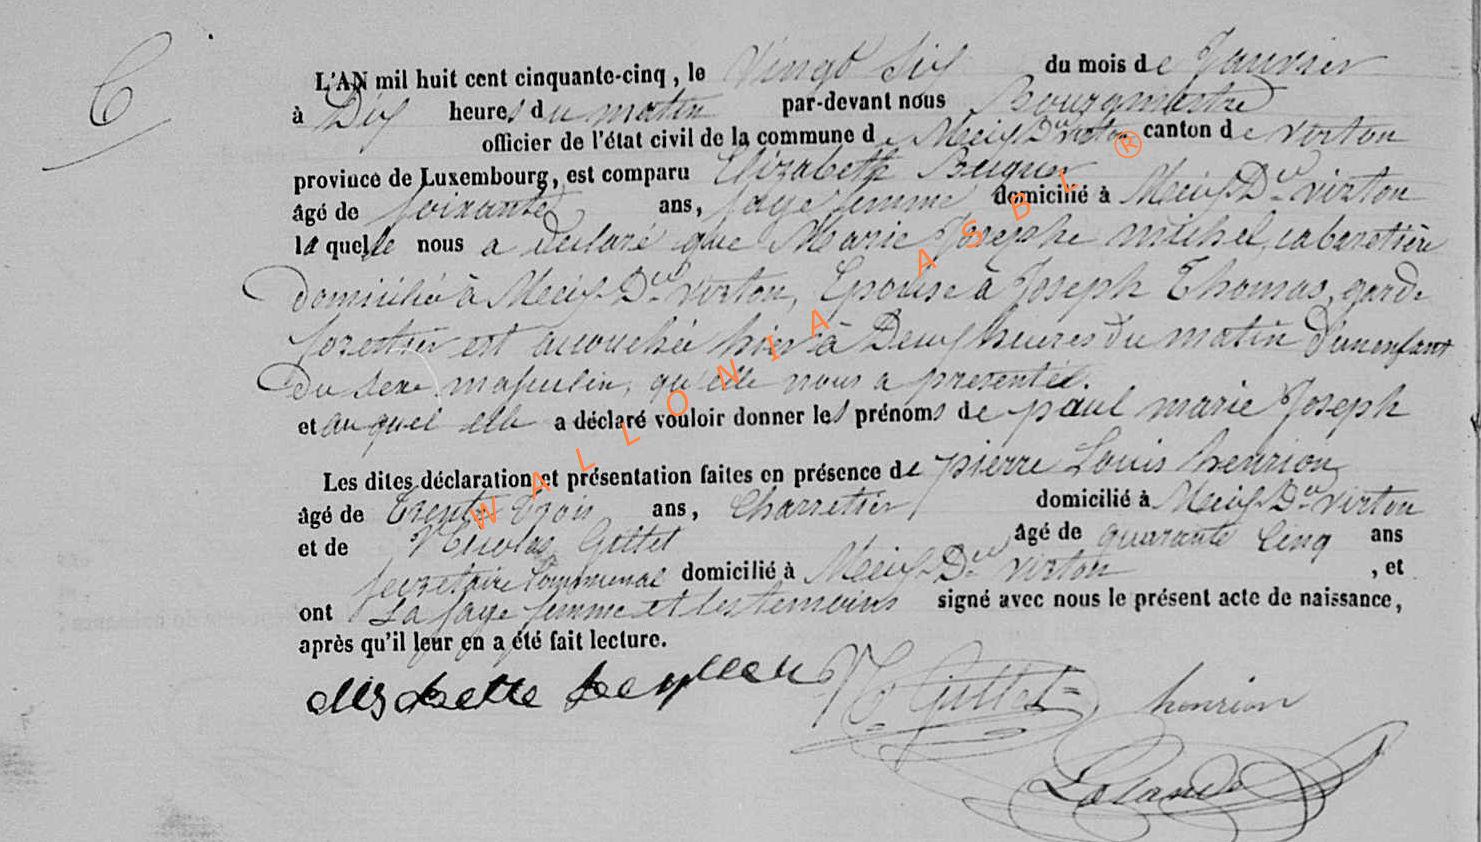 6
L'AN mil huit cent cinquante-cinq, le Vingt Six du mois de Janvier
à Dix heures du matin par-devant nous Bourgmestre
officier de l'état civil de la commune de Meix Dt virton canton de virton
province de Luxembourg, est comparu Elizabeth
âgé de soixante ans, sage femme domicilié à Meix Dt virton
laquelle nous a declaré que Marie Josephe michel, cabaretière
Domiciliée à Meix Dt virton, Epouse à Joseph Thomas, garde
forestier est accouchée hier à Deux heures du matin D'un enfant
Du sexe masculin, qu'elle nous a presenté.
et au quel elle a déclaré vouloir donner les prénoms de paul marie Joseph
Les dites déclaration et présentation faites en présence de pierre Louis henrion
âgé de Trente Trois ans, Charretier, domicilié à Meix Dt virton
et de Nicolas Gillet âgé de quarante Cinq ans
secretaire Communal domicilié à Meix Dt virton , et
ont La sage femme et les temoins signé avec nous le présent acte de naissance,
après qu'il leur en a été fait lecture.
N Gillet henrion
Lalande
WALLONIA ASBL ®